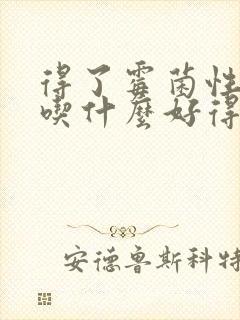 得了霉菌性
喫什麼好得
安德鲁斯科特